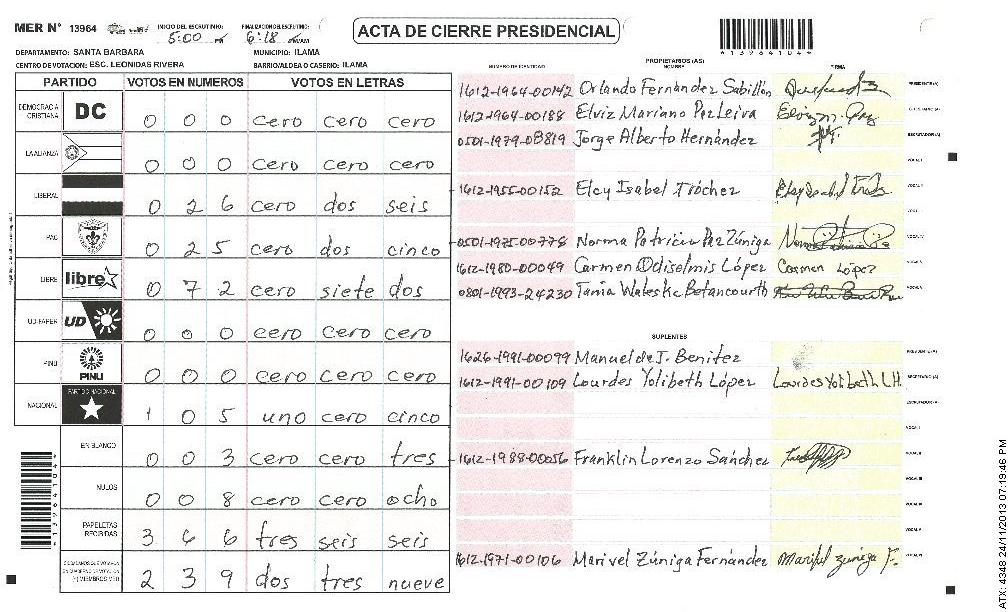 MER N° 13964 INICIO DEL ESCRUTINIO: 5:00 PM FINALIZACION ESCRUTINIO: 6:18 PM/AM ACTA DE CIERRE PRESIDENCIAL *1396410 4*
DEPARTAMENTO: SANTA BARBARA MUNICIPIO: ILAMA
CENTRO DE VOTACION: ESC. LEONIDAS RIVERA BARRIO/ALDEA O CASERIO: ILAMA
PARTIDO VOTOS EN NUMEROS VOTOS EN LETRAS
DEMOCRACIA CRISTIANA DC 0 0 0 cero cero cero
LA ALIANZA 0 0 0 cero cero cero
LIBERAL 0 2 6 cero dos seis
PAC 0 2 5 cero dos cinco
LIBRE libre 0 7 2 cero siete dos
UD-FAPER UD 0 0 0 cero cero cero
PINU PINU 0 0 0 cero cero cero
NACIONAL PARTIDO NACIONAL 1 0 5 uno cero cinco
EN BLANCO 0 0 3 cero cero tres
NULOS 0 0 8 cero cero ocho
PAPELETAS RECIBIDAS 3 6 6 tres seis seis
2 3 9 dos tres nueve
NUMERO DE IDENTIDAD PROPIETARIOS (AS) NOMBRE FIRMA
1612-1964-00142 Orlando Fernández Sabillón PRESIDENTE(A)
1612-1964-00188 Elviz Mariano Paz Leiva SECRETARIO(A)
0501-1979-08819 Jorge Alberto Hernández ESCRUTADOR(A)
VOCAL I
1612-1955-00152 Elcy Isabel Tróchez VOCAL II
0501-1975-00778 Norma Patricia Paz Zúniga VOCAL IV
1612-1980-00049 Carmen Odiselmis López Carmen López VOCAL V
0801-1993-24230 Tania Waleska Betancourth
SUPLENTES
1626-1991-00099 Manuel de J. Benitez PRESIDENTE(A)
1612-1991-00109 Lourdes Yolibeth López Lourdes Yolibeth L.H. SECRETARIO(A)
ESCRUTADOR(A)
VOCAL I
1612-1988-00056 Franklin Lorenzo Sánchez VOCAL II
VOCAL III
VOCAL IV
VOCAL V
1612-1971-00106 Marivel Zúniga Fernández Marivel Zúniga F.
*1396410 4*
ATX: 4348 24/11/2013 07:19:46 PM